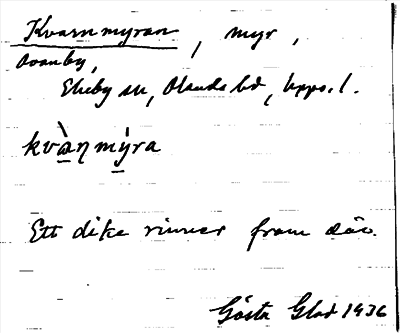 Kvarnmyran, myr,
Ovanby,
Ekeby sn, Olands hd, Upps. l.
kvàɳmýra
Ett dike rinner fram där.
Gösta Glad 1936